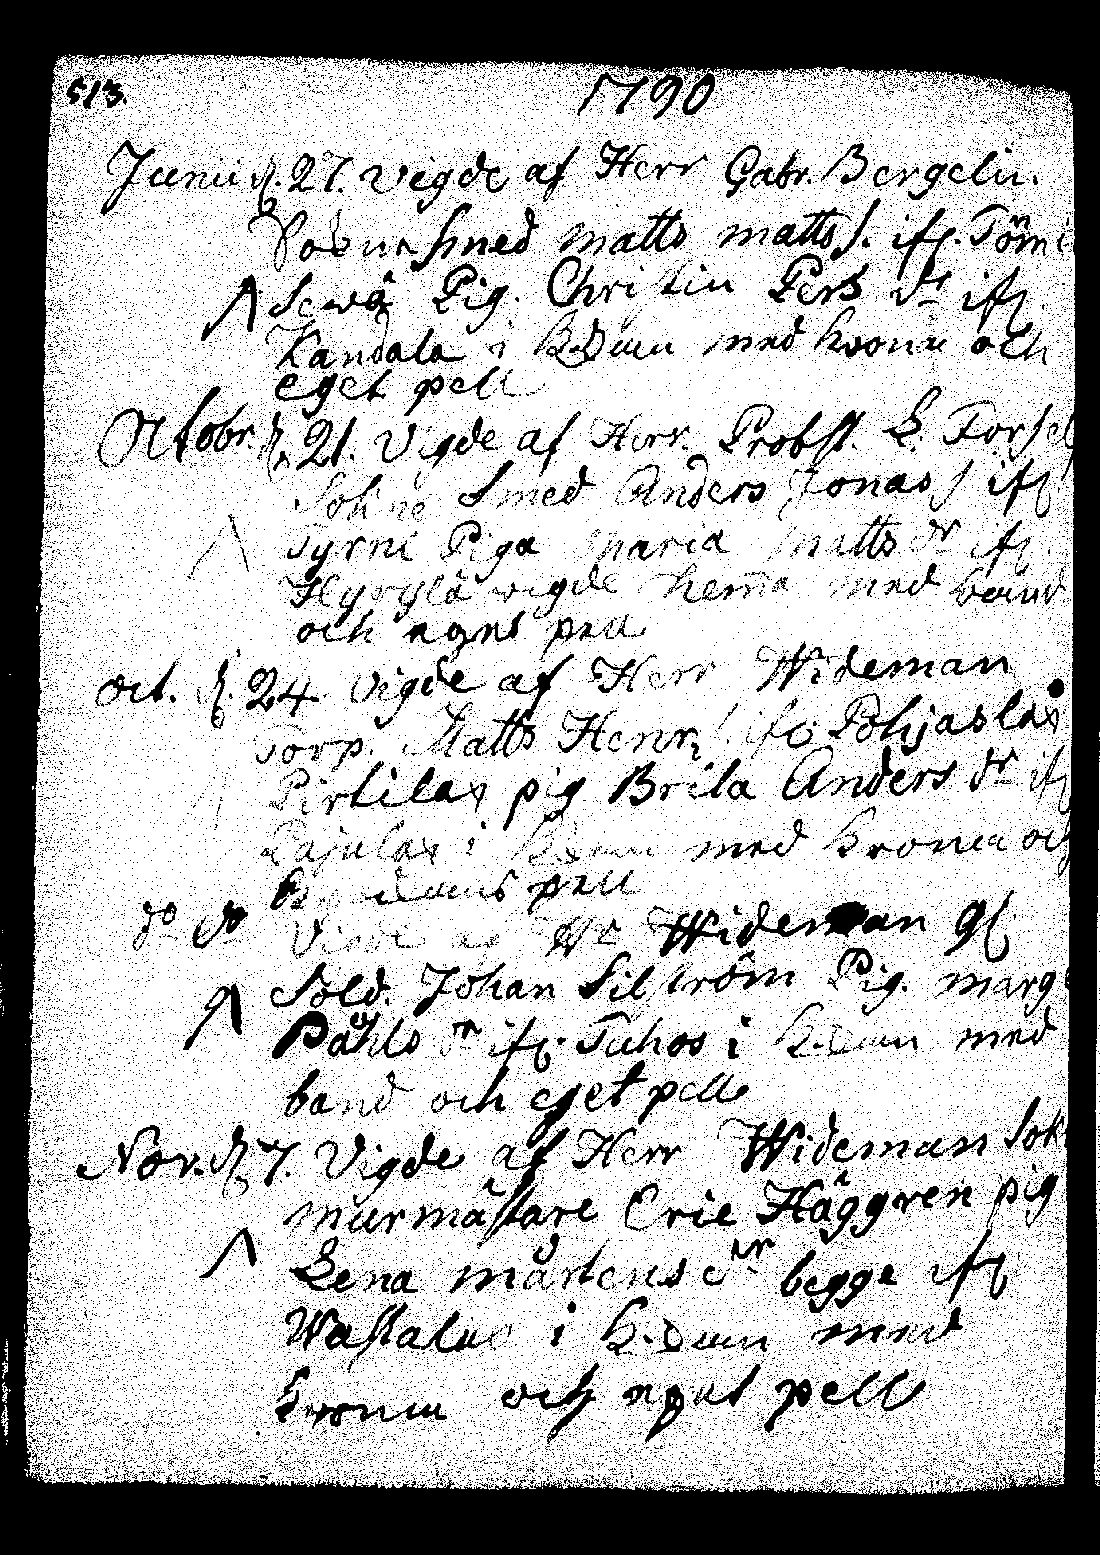 513.
1790
Junii d. 27. Vigde af Herr Gabr. Bergelin.
Sockne smed matts matts s. ifr. Töm
Pig. Christin Pers dr ifr.
Kandala i K.Dann med krona och
eget pell
Octobr. d. 21. Vigde af Herr. Probst. E. Forsel
Sokne Smed Anders Jonas s ifr
Tyrni Piga Maria Matts dr ifr.
Hyrylä vigde hema med band
och eget pell
Oct. d. 24. Vigde af Herr Wideman
Torp. Matts Henr. s. ifr Pohjaslax
Pirtilax pig Brita Anders dr ifr
Lajulax i K.Dann med krona och
pell
do do Vigde af Hr Wideman gl
Sold. Johan Silström Pig. marg
Påhls dr ifr. Tuhos i K.Dann med
band och eget pell
Nov. d. 7. Vigde af Herr Wideman Sok
murmästare Eric Häggren pig
Lena mårtens dr begge ifr
i K.Dann med
krona och eget pell